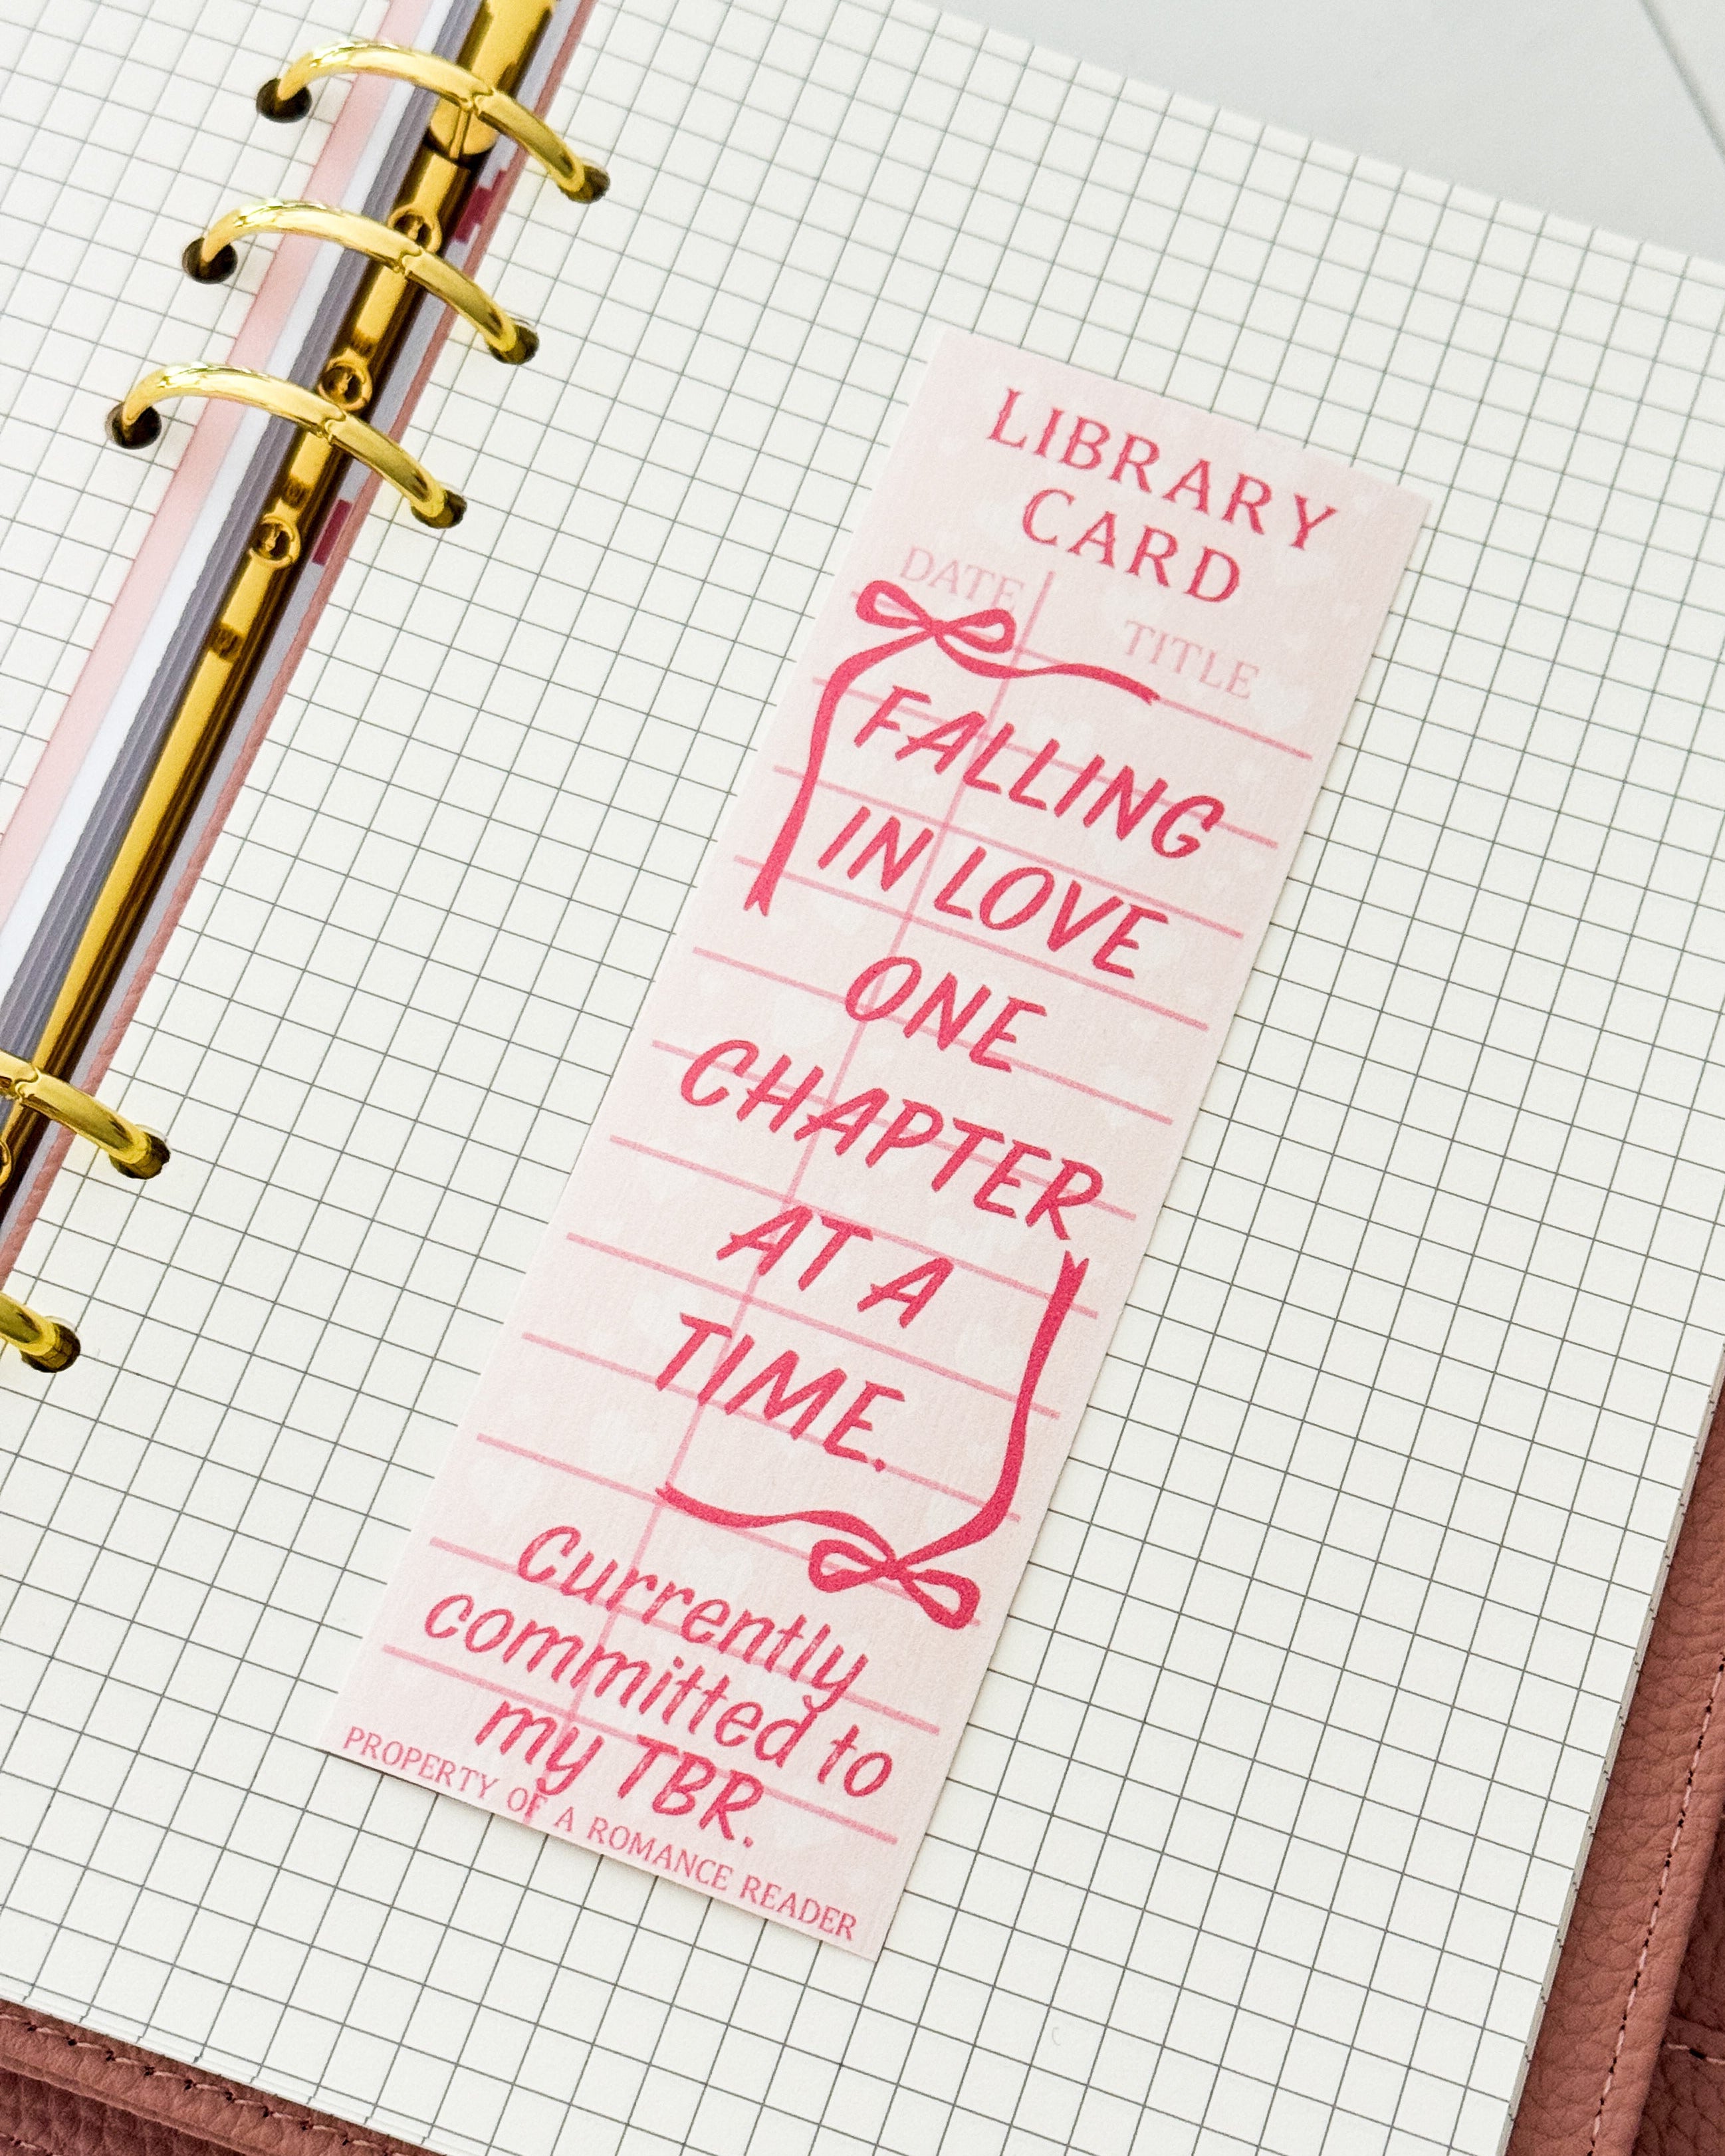 LIBRARY
CARD
DATE
TITLE
FALLING
IN LOVE
ONE
CHAPTER
AT A
TIME.
Currently
committed to
my TBR.
PROPERTY OF A ROMANCE READER